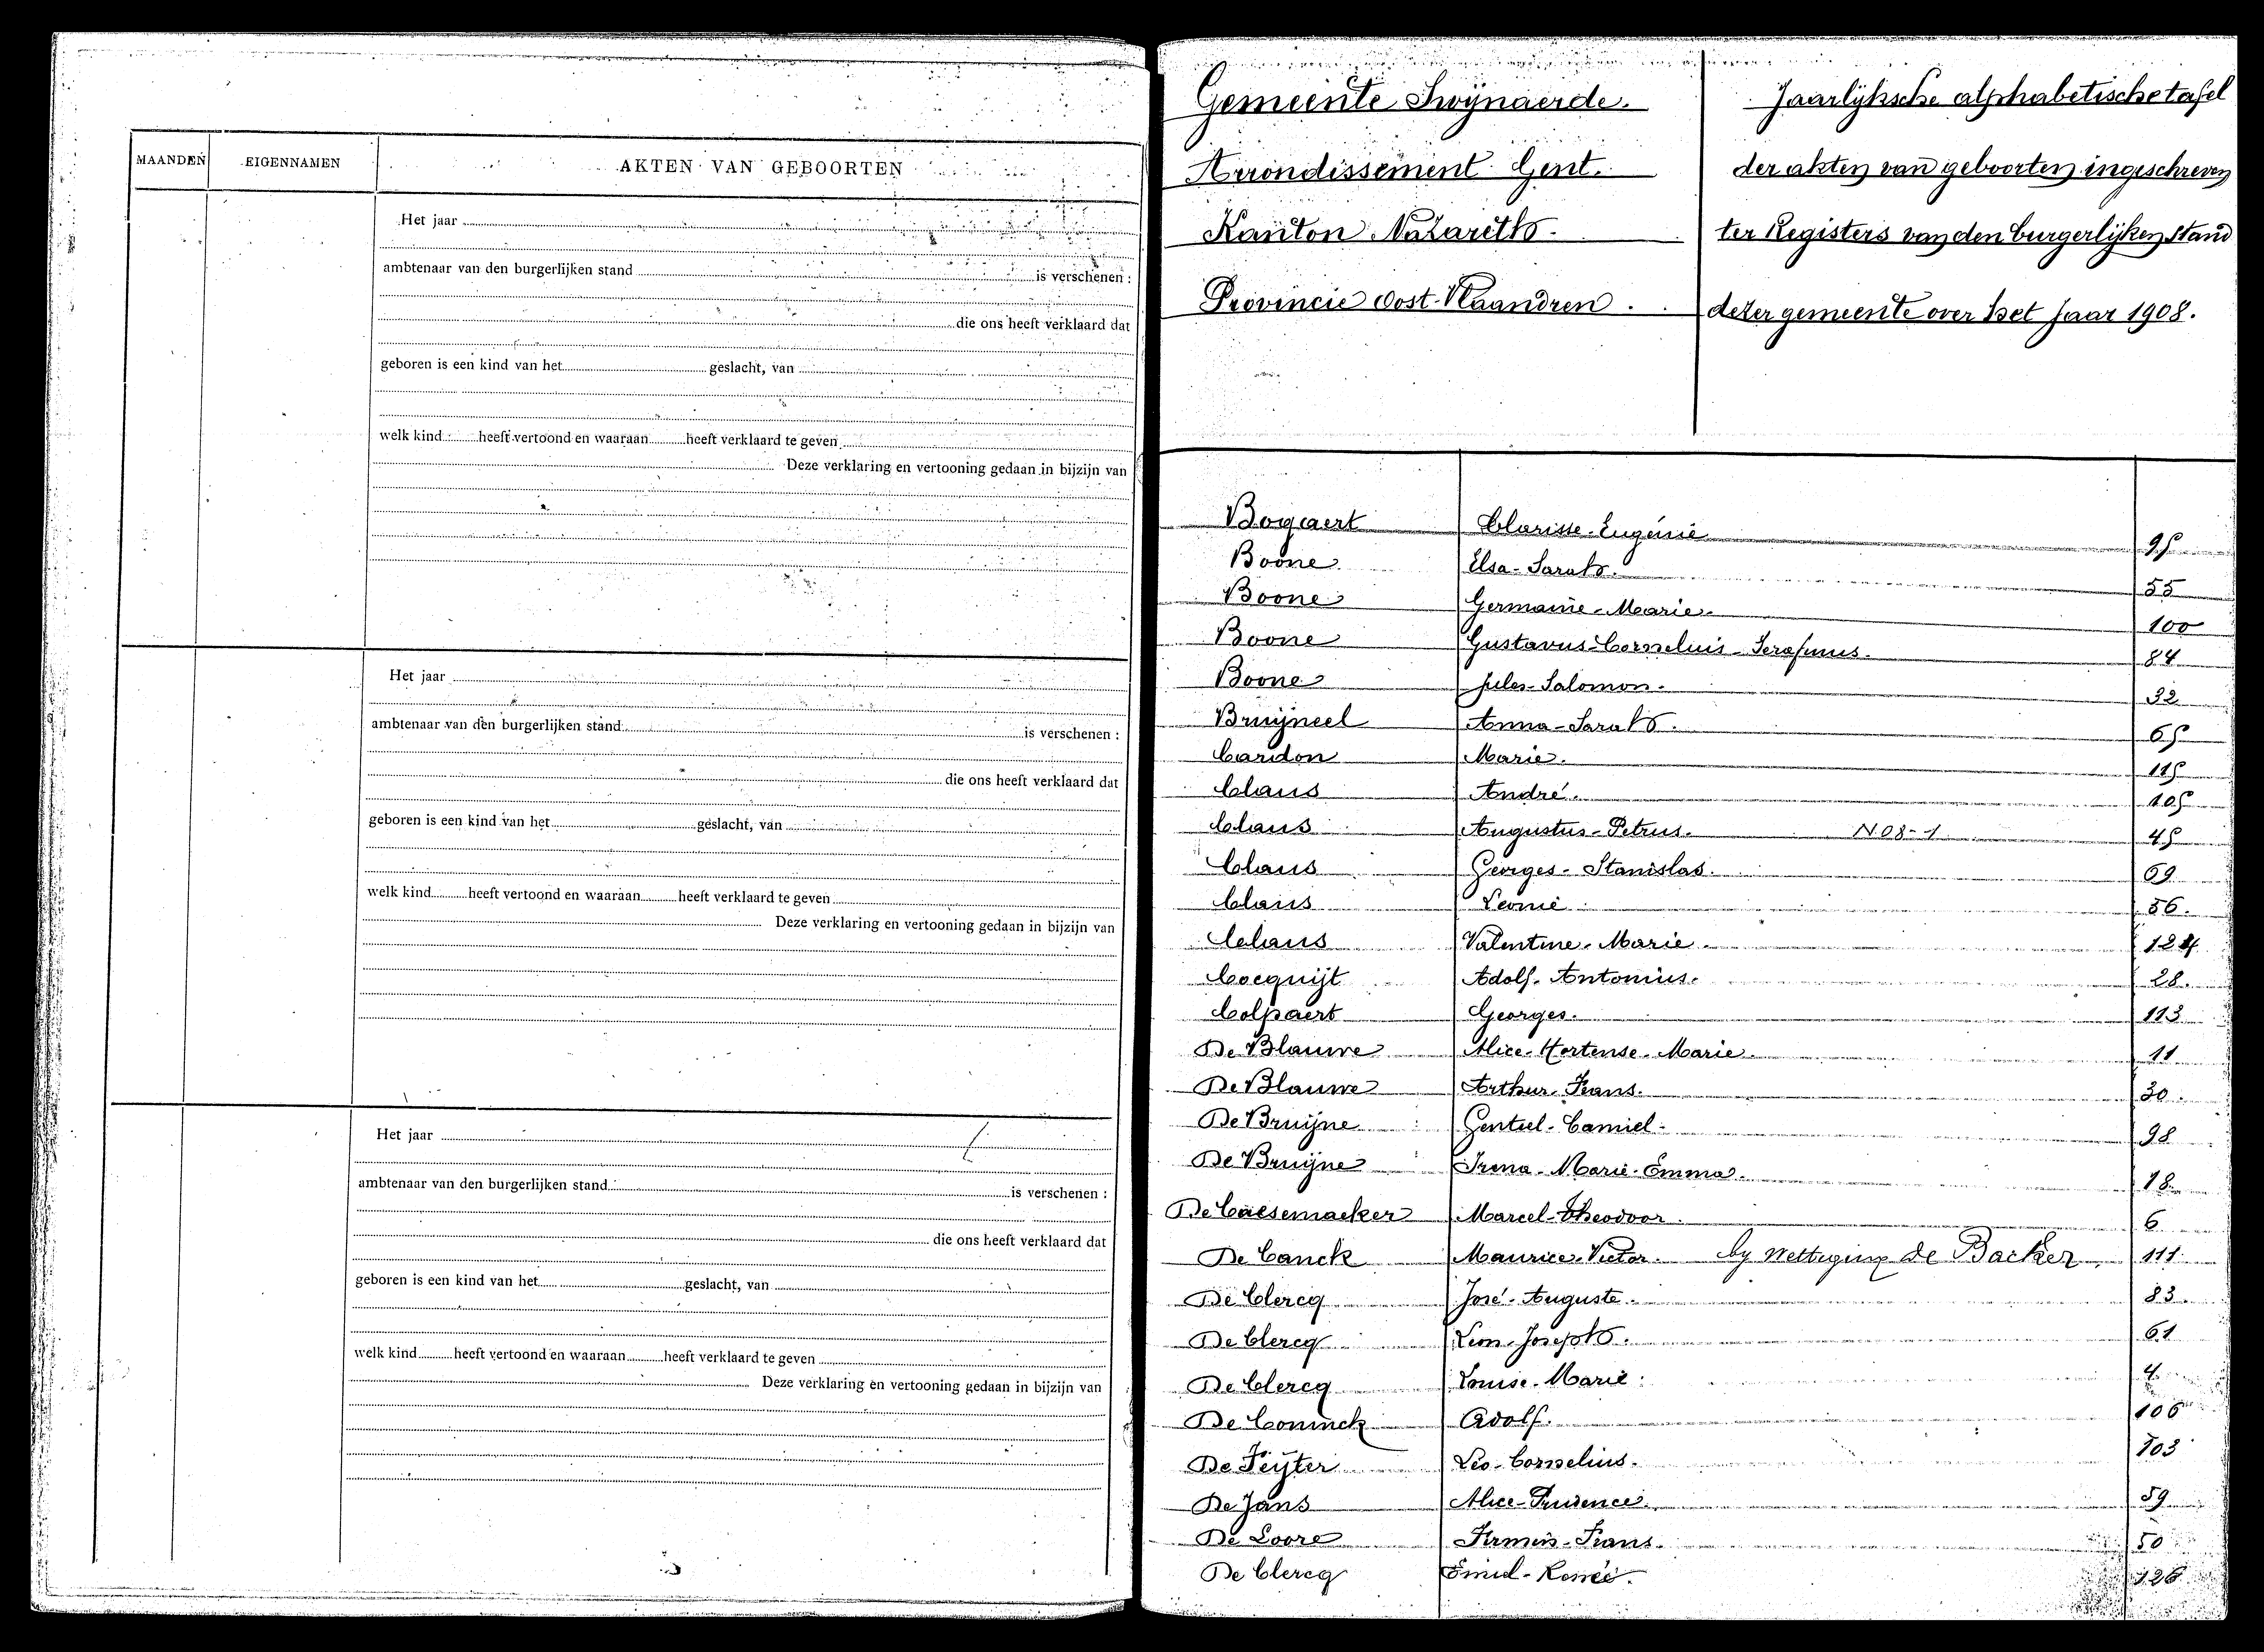 MAANDEN EIGENNAMEN AKTEN VAN GEBOORTEN
Het jaar
ambtenaar van den burgerlijken stand is verschenen :
die ons heeft verklaard dat
geboren is een kind van het geslacht, van
welk kind heeft vertoond en waaraan heeft verklaard te geven
Deze verklaring en vertooning gedaan in bijzijn van
Het jaar
ambtenaar van den burgerlijken stand is verschenen :
die ons heeft verklaard dat
geboren is een kind van het geslacht, van
welk kind heeft vertoond en waaraan heeft verklaard te geven
Deze verklaring en vertooning gedaan in bijzijn van
Het jaar
ambtenaar van den burgerlijken stand is verschenen :
die ons heeft verklaard dat
geboren is een kind van het geslacht, van
welk kind heeft vertoond en waaraan heeft verklaard te geven
Deze verklaring en vertooning gedaan in bijzijn van
Gemeente Swijnaerde.
Arrondissement Gent.
Kanton Nazareth.
Provincie Oost-Vlaandren.
Jaarlijksche alphabetische tafel
der akten van geboorten ingeschreven
ter Registers van den burgerlijken Stand
dezer gemeente over het Jaar 1908.
Bogaert Clarisse-Eugénie 95
Boone Elsa-Sarah. 55
Boone Germanie-Marie. 100
Boone Gustavus-Cornelius-Serafinus. 84
Boone Jules-Salomon. 32
Bruijneel Anna-Sarah. 65
Cardon Marie. 115
Claus André. 105
Claus Augustus-Petrus. N 08-1 45
Claus Georges-Stanislas. 69
Claus Leonie 56.
Claus Valentine-Marie. 124
Cocquijt Adolf-Antonius. 28.
Colpaert Georges. 113
De Blauwe Alice-Hortense-Marie. 11
De Blauwe Arthur-Frans. 30.
De Bruijne Gentiel-Camiel. 98
De Bruijne Irena-Marie-Emma. 18
De Caesemaeker Marcel-Theodoor. 6
De Canck Maurice-Victor. by Wettiging De Backer 111
De Clercq José-Auguste. 83
De Clercq Leon-Joseph. 61
De Clercq Louise-Marie. 4
De Coninck Adolf. 106
De Feijter Leo-Cornelius. 103
De Jans Alice-Prudence. 59
De Loore Firmin-Frans. 50
De Clercq Emiel-Renée. 126